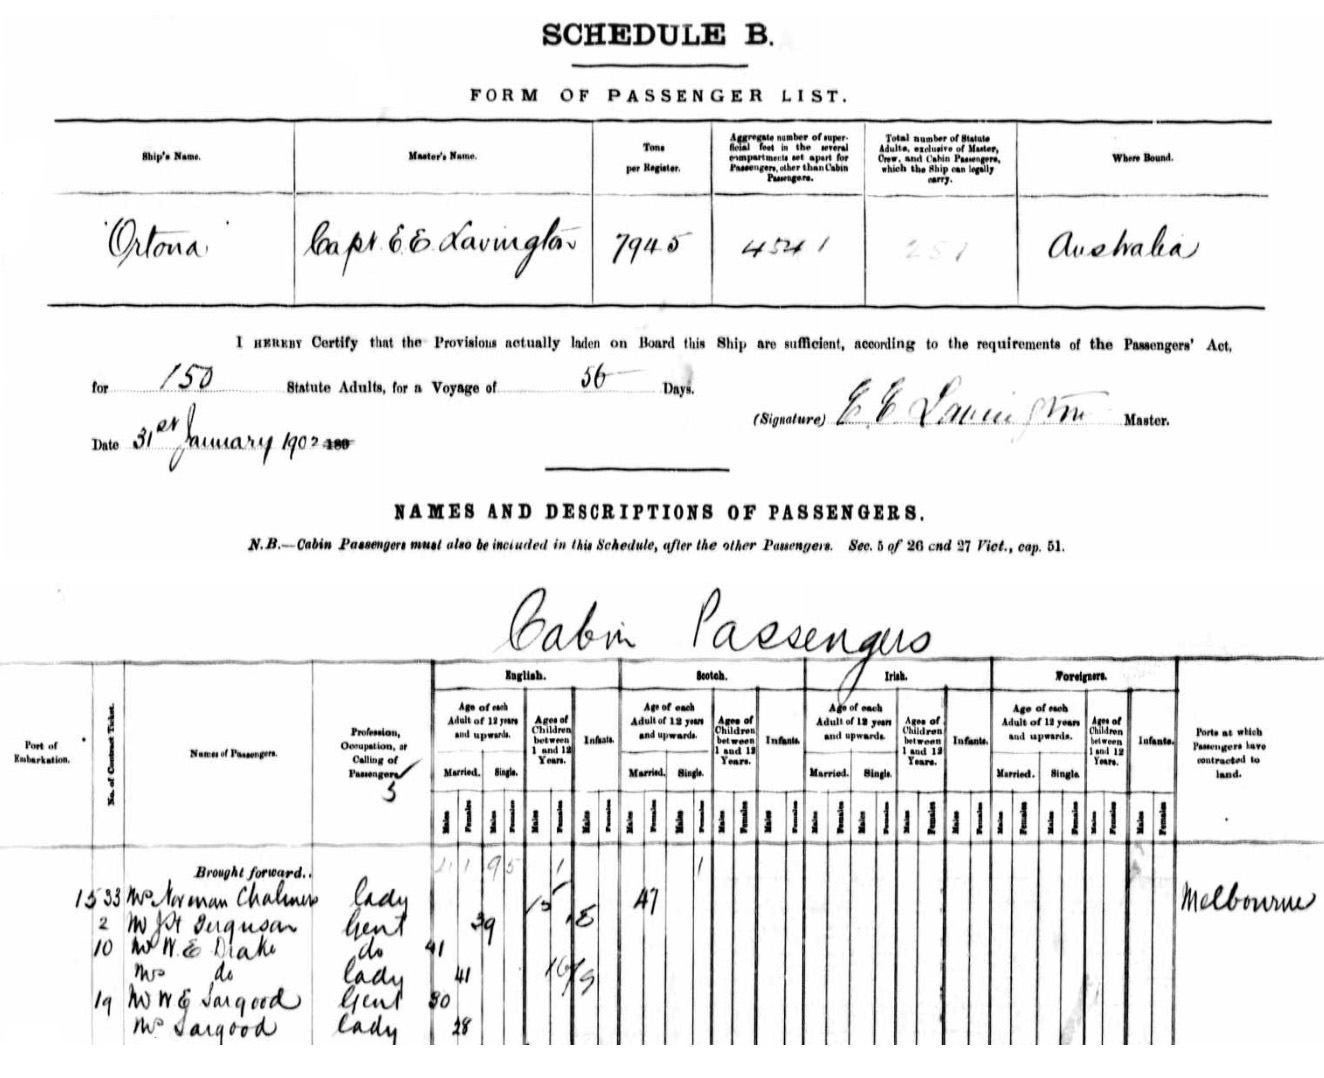 SCHEDULE B.
FORM OF PASSENGER LIST.
Ship's Name.
Master's Name.
Tons per Register.
Aggregate number of superficial feet in the several compartments set apart for Passengers, other than Cabin Passengers.
Total number of Statute Adults, exclusive of Master, Crew, and Cabin Passengers, which the Ship can legally carry.
Where Bound.
"Ortona" Capt. E E Lavington 7945 4541 251 Australia
I HEREBY Certify that the Provisions actually laden on Board this Ship are sufficient, according to the requirements of the Passengers' Act,
for 150 Statute Adults, for a Voyage of 56 Days.
(Signature) E E Lavington Master.
Date 31st January 1902 180
NAMES AND DESCRIPTIONS OF PASSENGERS.
N.B.—Cabin Passengers must also be included in this Schedule, after the other Passengers. Sec. 5 of 26 and 27 Vict., cap. 51.
Cabin Passengers
Port of Embarkation.
No. of Contract Ticket.
Names of Passengers.
Profession, Occupation, or Calling of Passengers
English. Scotch. Irish. Foreigners.
Age of each Adult of 12 years and upwards. Ages of Children between 1 and 12 Years. Infants. Age of each Adult of 12 years and upwards. Ages of Children between 1 and 12 Years. Infants. Age of each Adult of 12 years and upwards. Ages of Children between 1 and 12 Years. Infants. Age of each Adult of 12 years and upwards. Ages of Children between 1 and 12 Years. Infants.
Married. Single. Married. Single. Married. Single. Married. Single.
Males Females Males Females Males Females Males Females Males Females Males Females Males Females Males Females Males Females Males Females Males Females Males Females Males Females Males Females Males Females Males Females
Ports at which Passengers have contracted to land.
Brought forward..
1533 Mrs Norman Chalmers lady 47 Melbourne
2 Mr Ferguson Gent 39
10 Mr W. E Drake do 41
Mrs do lady 41
19 Mr W E Sargood Gent 30
Mrs Sargood lady 28